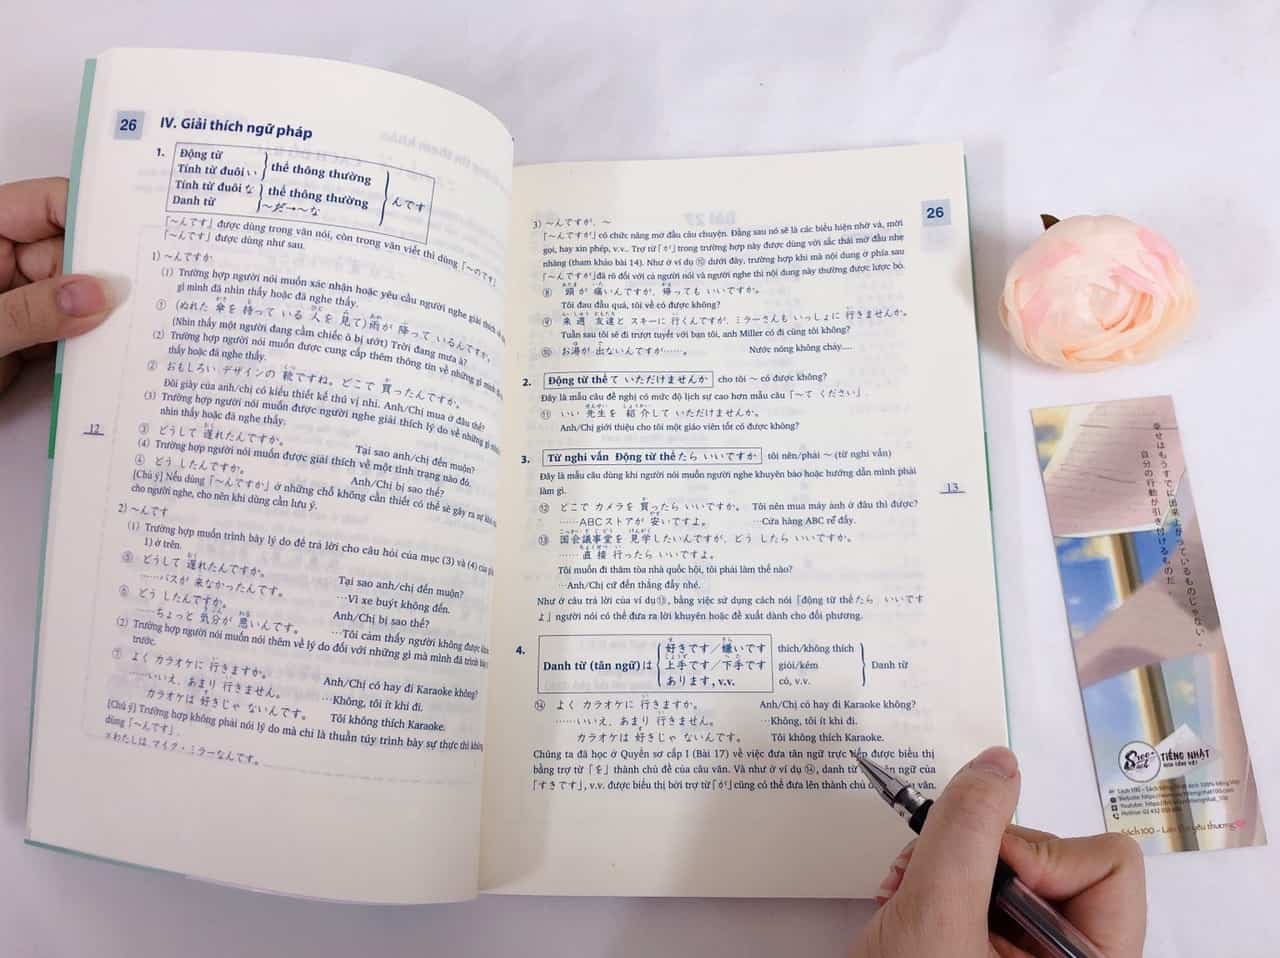 26
IV. Giải thích ngữ pháp
1.
Động từ
Tính từ đuôi い
thể thông thường
Tính từ đuôi な
thể thông thường
Danh từ
～だ→～な
んです
「～んです」 được dùng trong văn nói, còn trong văn viết thì dùng 「～のです」
「～んです」 được dùng như sau.
1) ～んですか
(1) Trường hợp người nói muốn xác nhận hoặc yêu cầu người nghe giải thích
gì mình đã nhìn thấy hoặc đã nghe thấy.
① (ぬれた 傘を 持って いる 人を 見て)雨が 降って いるんですか。
(Nhìn thấy một người đang cầm chiếc ô bị ướt) Trời đang mưa à?
(2) Trường hợp người nói muốn được cung cấp thêm thông tin về những gì mình
thấy hoặc đã nghe thấy.
② おもしろい デザインの 靴ですね。どこで 買ったんですか。
Đôi giày của anh/chị có kiểu thiết kế thú vị nhỉ. Anh/Chị mua ở đâu thế?
(3) Trường hợp người nói muốn được người nghe giải thích lý do về những gì
nhìn thấy hoặc đã nghe thấy.
③ どうして 遅れたんですか。 Tại sao anh/chị đến muộn?
(4) Trường hợp người nói muốn được giải thích về một tình trạng nào đó.
④ どう したんですか。 Anh/Chị bị sao thế?
[Chú ý] Nếu dùng 「～んですか」 ở những chỗ không cần thiết có thể sẽ gây ra sự
cho người nghe, cho nên khi dùng cần lưu ý.
2) ～んです
(1) Trường hợp muốn trình bày lý do để trả lời cho câu hỏi của mục (3) và (4) của
1) ở trên.
⑤ どうして 遅れたんですか。 Tại sao anh/chị đến muộn?
……バスが 来なかったんです。 …Vì xe buýt không đến.
⑥ どう したんですか。 Anh/Chị bị sao thế?
……ちょっと 気分が 悪いんです。 …Tôi cảm thấy người không được
(2) Trường hợp người nói muốn nói thêm về lý do đối với những gì mà mình đã trình bày
trước.
⑦ よく カラオケに 行きますか。 Anh/Chị có hay đi Karaoke không?
……いいえ、あまり 行きません。 …Không, tôi ít khi đi.
カラオケは 好きじゃ ないんです。 Tôi không thích Karaoke.
[Chú ý] Trường hợp không phải nói lý do mà chỉ là thuần túy trình bày sự thực thì không
dùng 「～んです」.
×わたしは マイク・ミラーなんです。
12
26
3) ～んですが、～
「～んですが」 có chức năng mở đầu câu chuyện. Đằng sau nó sẽ là các biểu hiện nhờ vả, mời
gọi, hay xin phép, v.v.. Trợ từ 「が」 trong trường hợp này được dùng với sắc thái mở đầu nhẹ
nhàng (tham khảo bài 14). Như ở ví dụ ⑩ dưới đây, trường hợp khi mà nội dung ở phía sau
「～んですが」 đã rõ đối với cả người nói và người nghe thì nội dung này thường được lược bỏ.
⑧ 頭が 痛いんですが、帰っても いいですか。
Tôi đau đầu quá, tôi về có được không?
⑨ 来週 友達と スキーに 行くんですが、ミラーさんも いっしょに 行きませんか。
Tuần sau tôi sẽ đi trượt tuyết với bạn tôi, anh Miller có đi cùng tôi không?
⑩ お湯が 出ないんですが……。 Nước nóng không chảy....
2. Động từ thể て いただけませんか cho tôi ～ có được không?
Đây là mẫu câu đề nghị có mức độ lịch sự cao hơn mẫu câu 「～て ください」.
⑪ いい 先生を 紹介して いただけませんか。
Anh/Chị giới thiệu cho tôi một giáo viên tốt có được không?
3. Từ nghi vấn Động từ thể たら いいですか tôi nên/phải ～ (từ nghi vấn)
Đây là mẫu câu dùng khi người nói muốn người nghe khuyên bảo hoặc hướng dẫn mình phải
làm gì.
⑫ どこで カメラを 買ったら いいですか。 Tôi nên mua máy ảnh ở đâu thì được?
……ABCストアが 安いですよ。 …Cửa hàng ABC rẻ đấy.
⑬ 国会議事堂を 見学したいんですが、どう したら いいですか。
…… 直接 行ったら いいですよ。
Tôi muốn đi thăm tòa nhà quốc hội, tôi phải làm thế nào?
…Anh/Chị cứ đến thẳng đấy nhé.
Như ở câu trả lời của ví dụ⑬, bằng việc sử dụng cách nói 「động từ thể たら いいです
よ」 người nói có thể đưa ra lời khuyên hoặc đề xuất dành cho đối phương.
4.
Danh từ (tân ngữ) は
好きです／嫌いです thích/không thích
上手です／下手です giỏi/kém
あります, v.v. có, v.v.
Danh từ
⑭ よく カラオケに 行きますか。 Anh/Chị có hay đi Karaoke không?
……いいえ、あまり 行きません。 …Không, tôi ít khi đi.
カラオケは 好きじゃ ないんです。 Tôi không thích Karaoke.
Chúng ta đã học ở Quyển sơ cấp I (Bài 17) về việc đưa tân ngữ trực tiếp được biểu thị
bằng trợ từ 「を」 thành chủ đề của câu văn. Và như ở ví dụ ⑭, danh từ ngữ của
「すきです」, v.v. được biểu thị bởi trợ từ 「が」 cũng có thể đưa lên thành chủ văn.
13
幸せはもうすでに出来上がっているものじゃない。
自分の行動が引き付けるものだ。
TIẾNG NHẬT